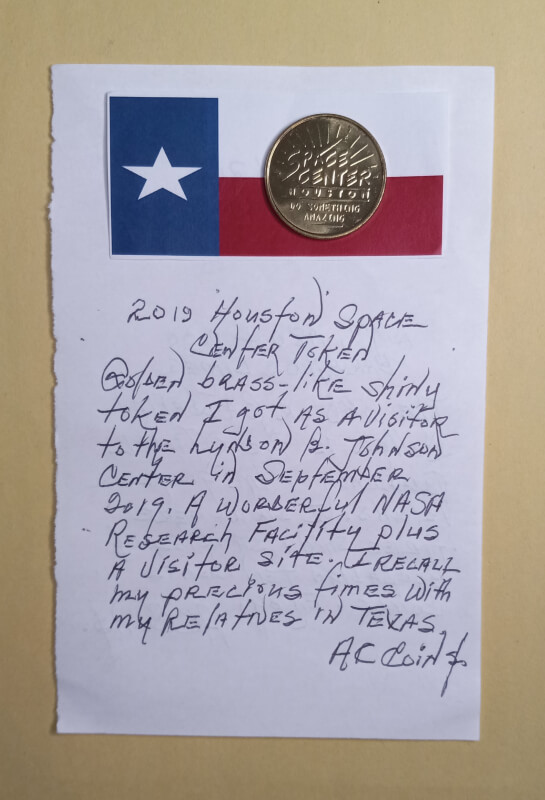 SPACE
CENTER
HOUSTON
DO SOMETHING
AMAZING
2019 "Houston" Space
Center Token
Golden brass-like shiny
token I got as a visitor
to the Lyndon B. Johnson
Center in September
2019. A wonderful NASA
Research Facility plus
a visitor site. I recall
my precious times with
my relatives in Texas.
AC Coins